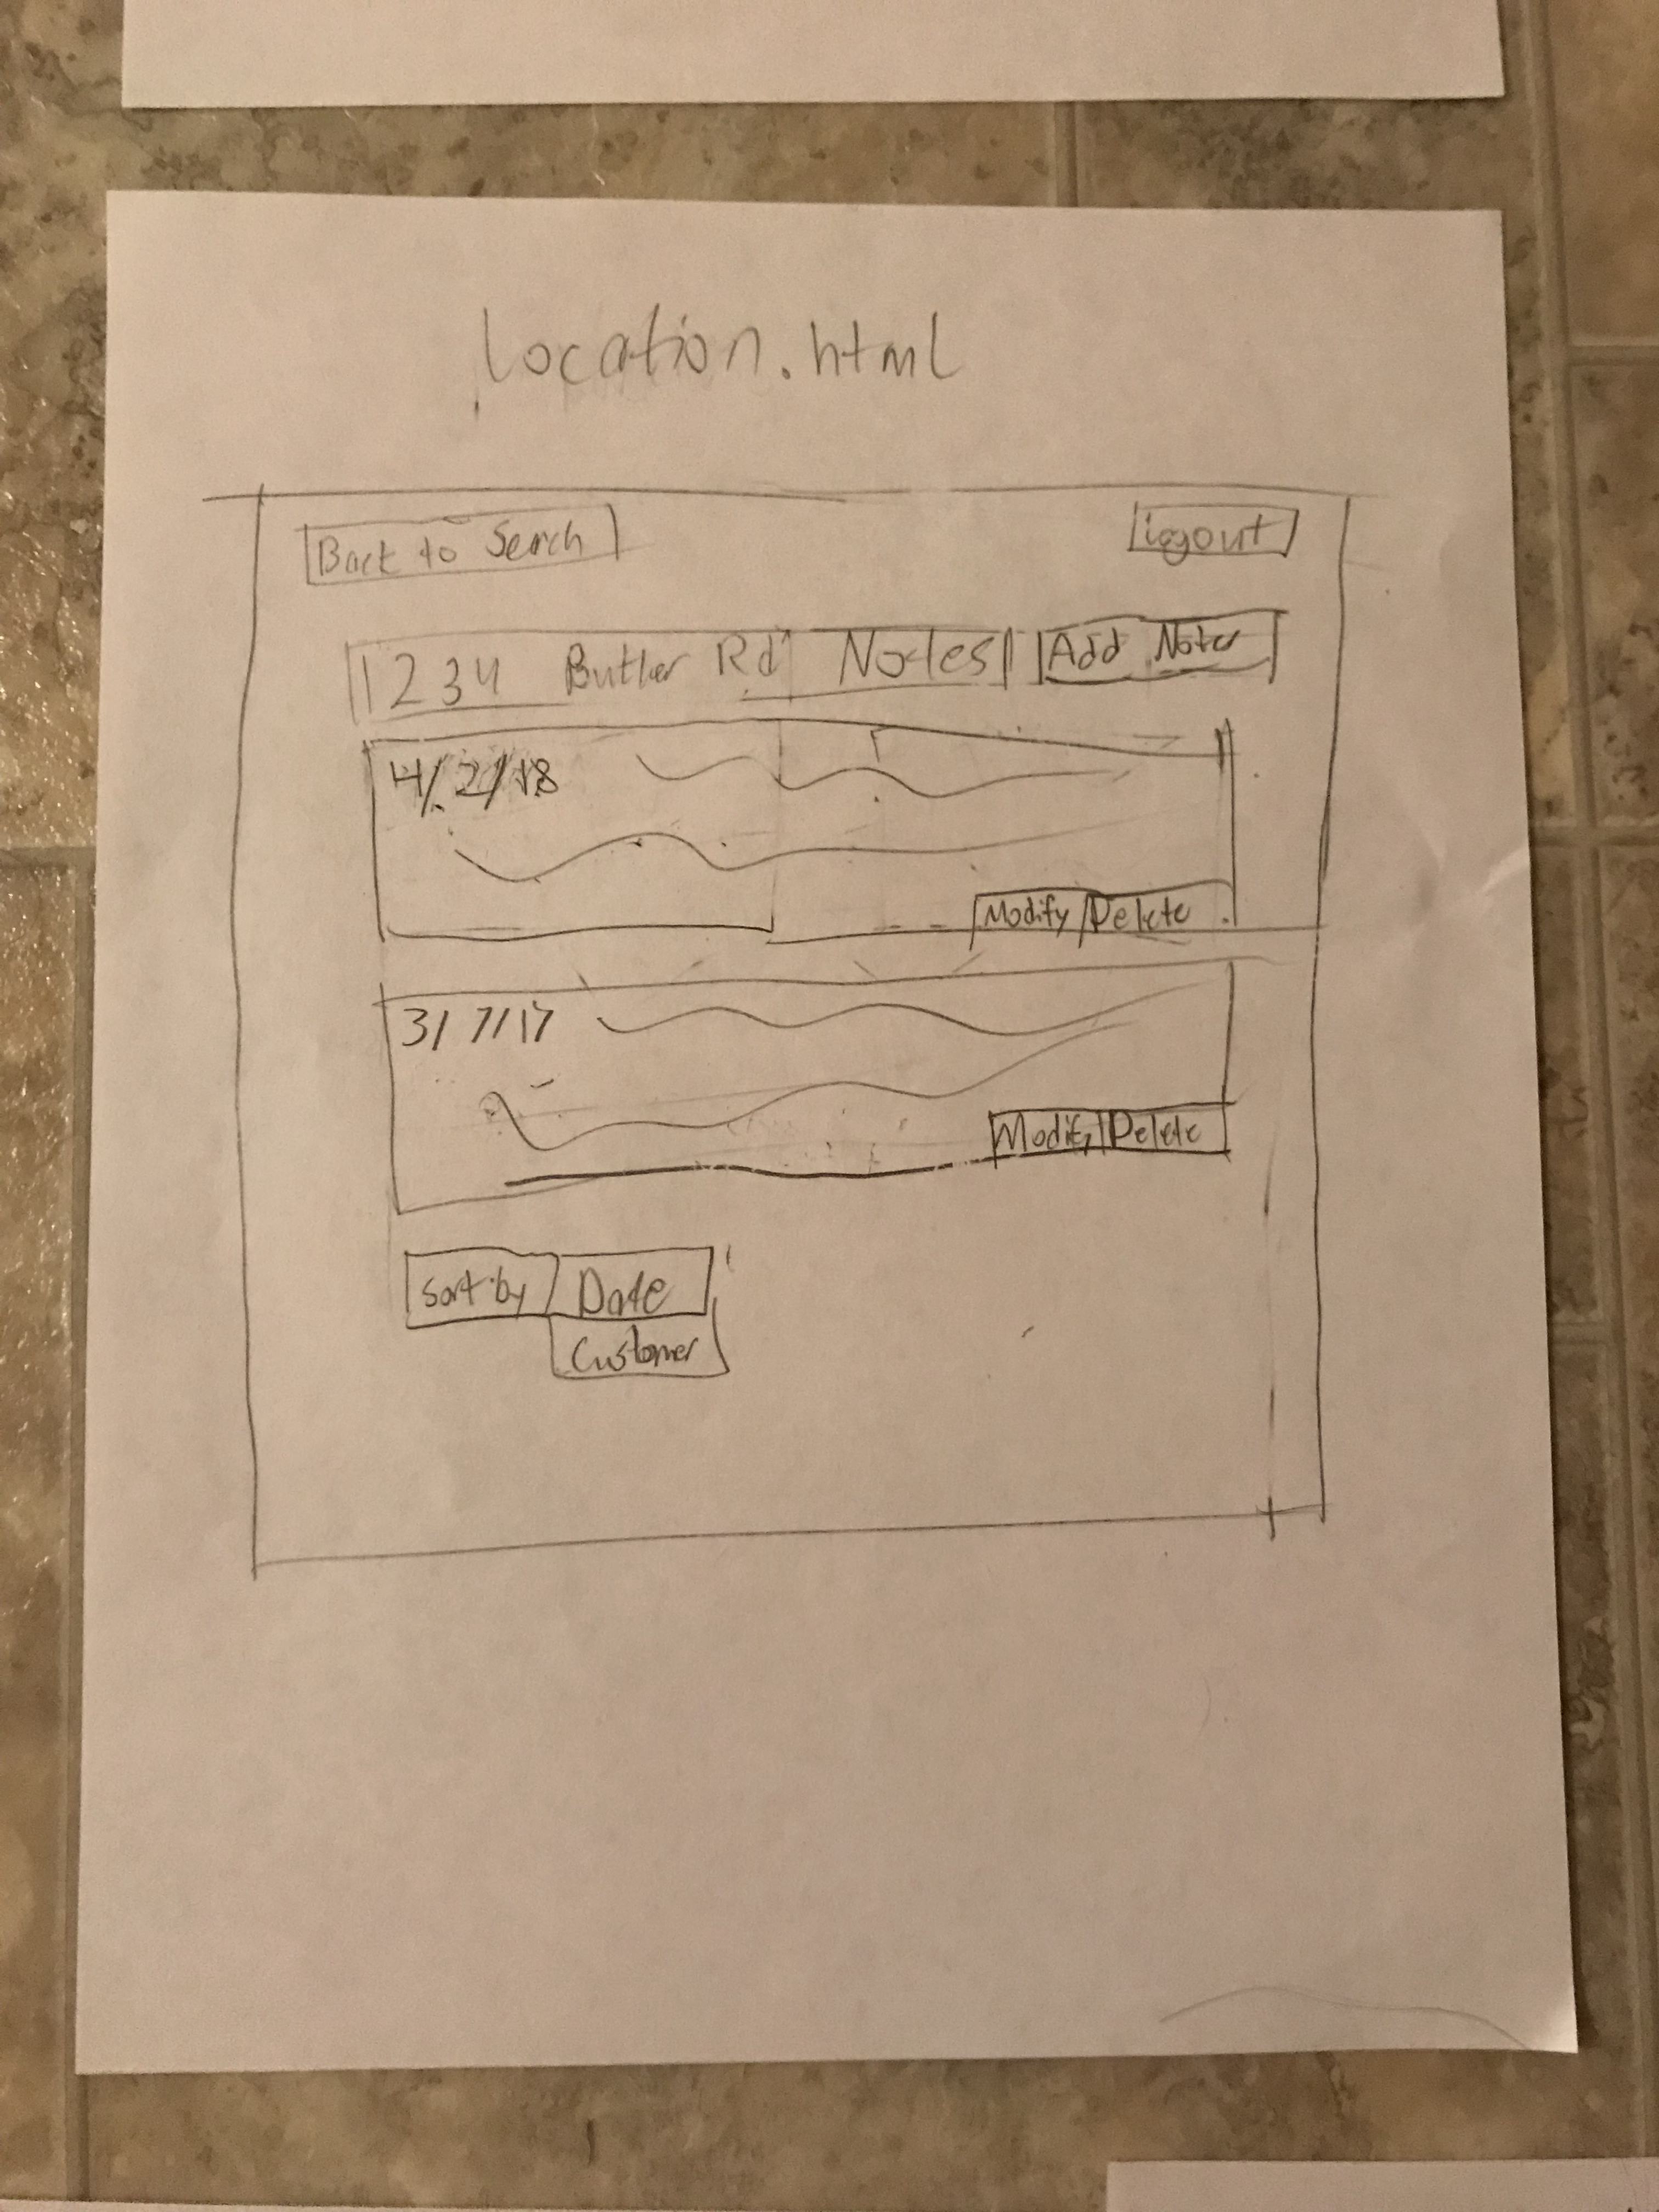 location.html
Back to Search
Logout
1234 Butler Rd Notes
Add Note
4/2/18
Modify Delete
3/7/17
Modify Delete
Sort by Date
Customer